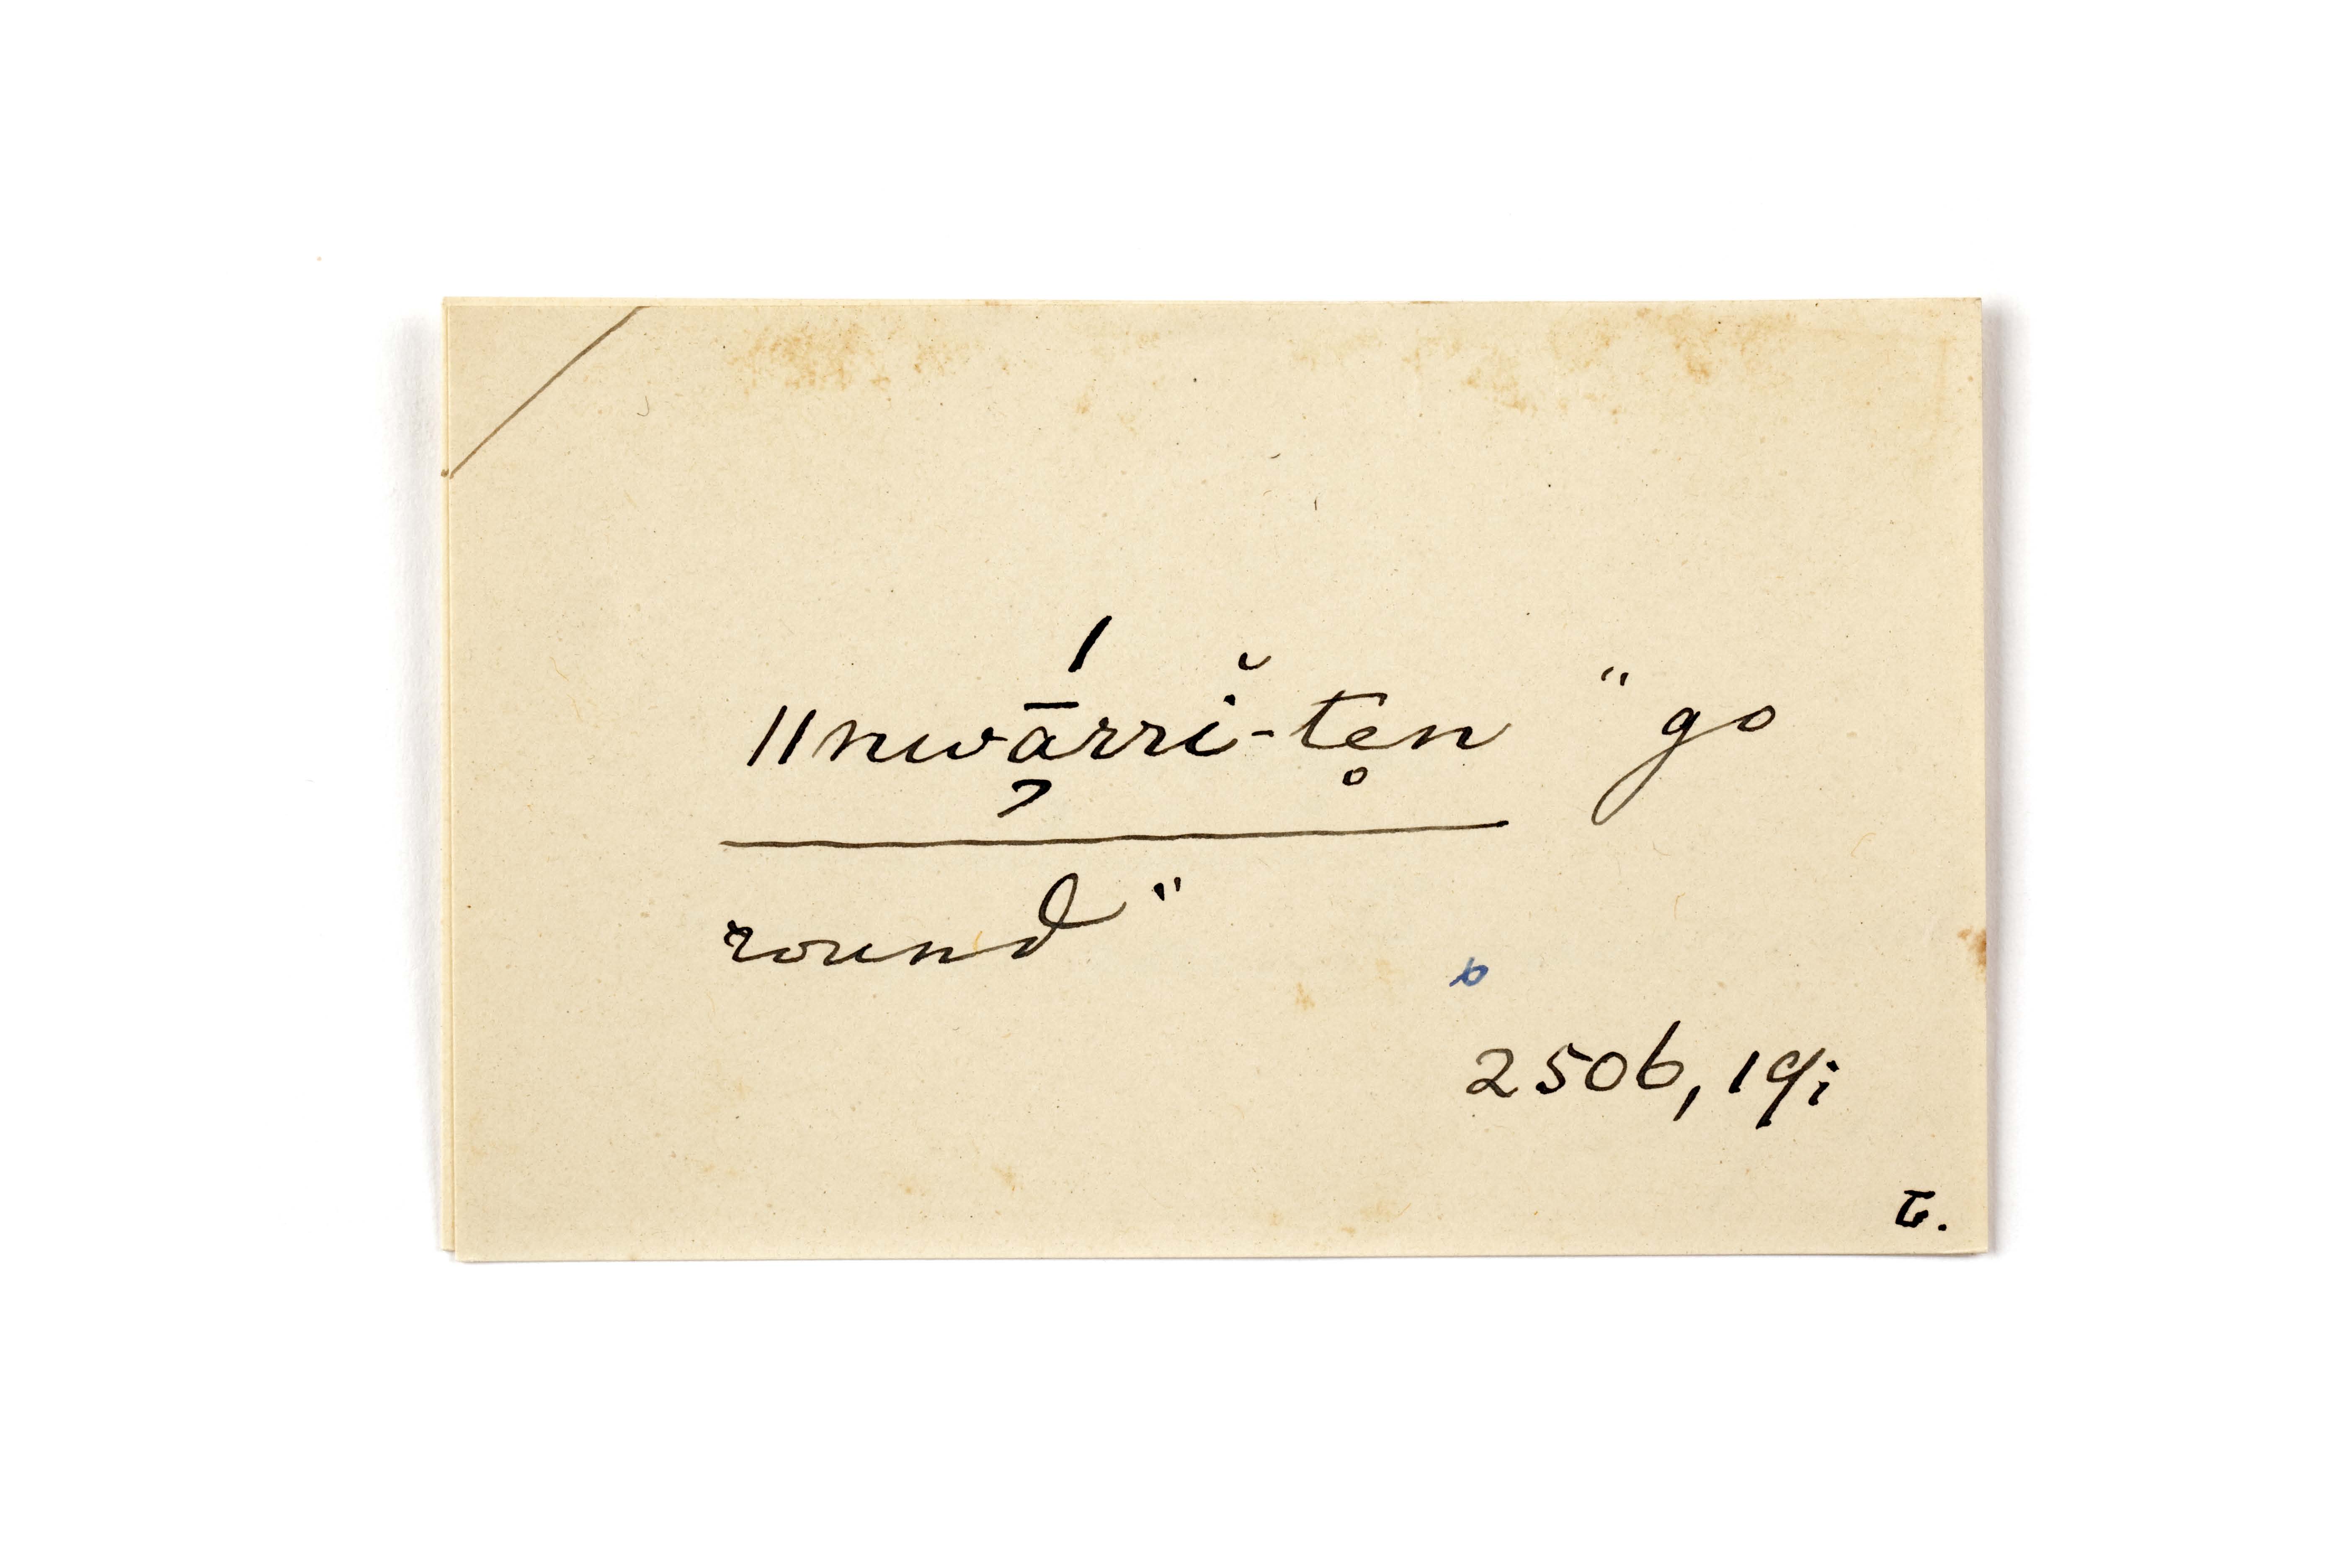 ǁnwą̄́rrĭ-te̥n "go
round"
b
2506, 19i
T.